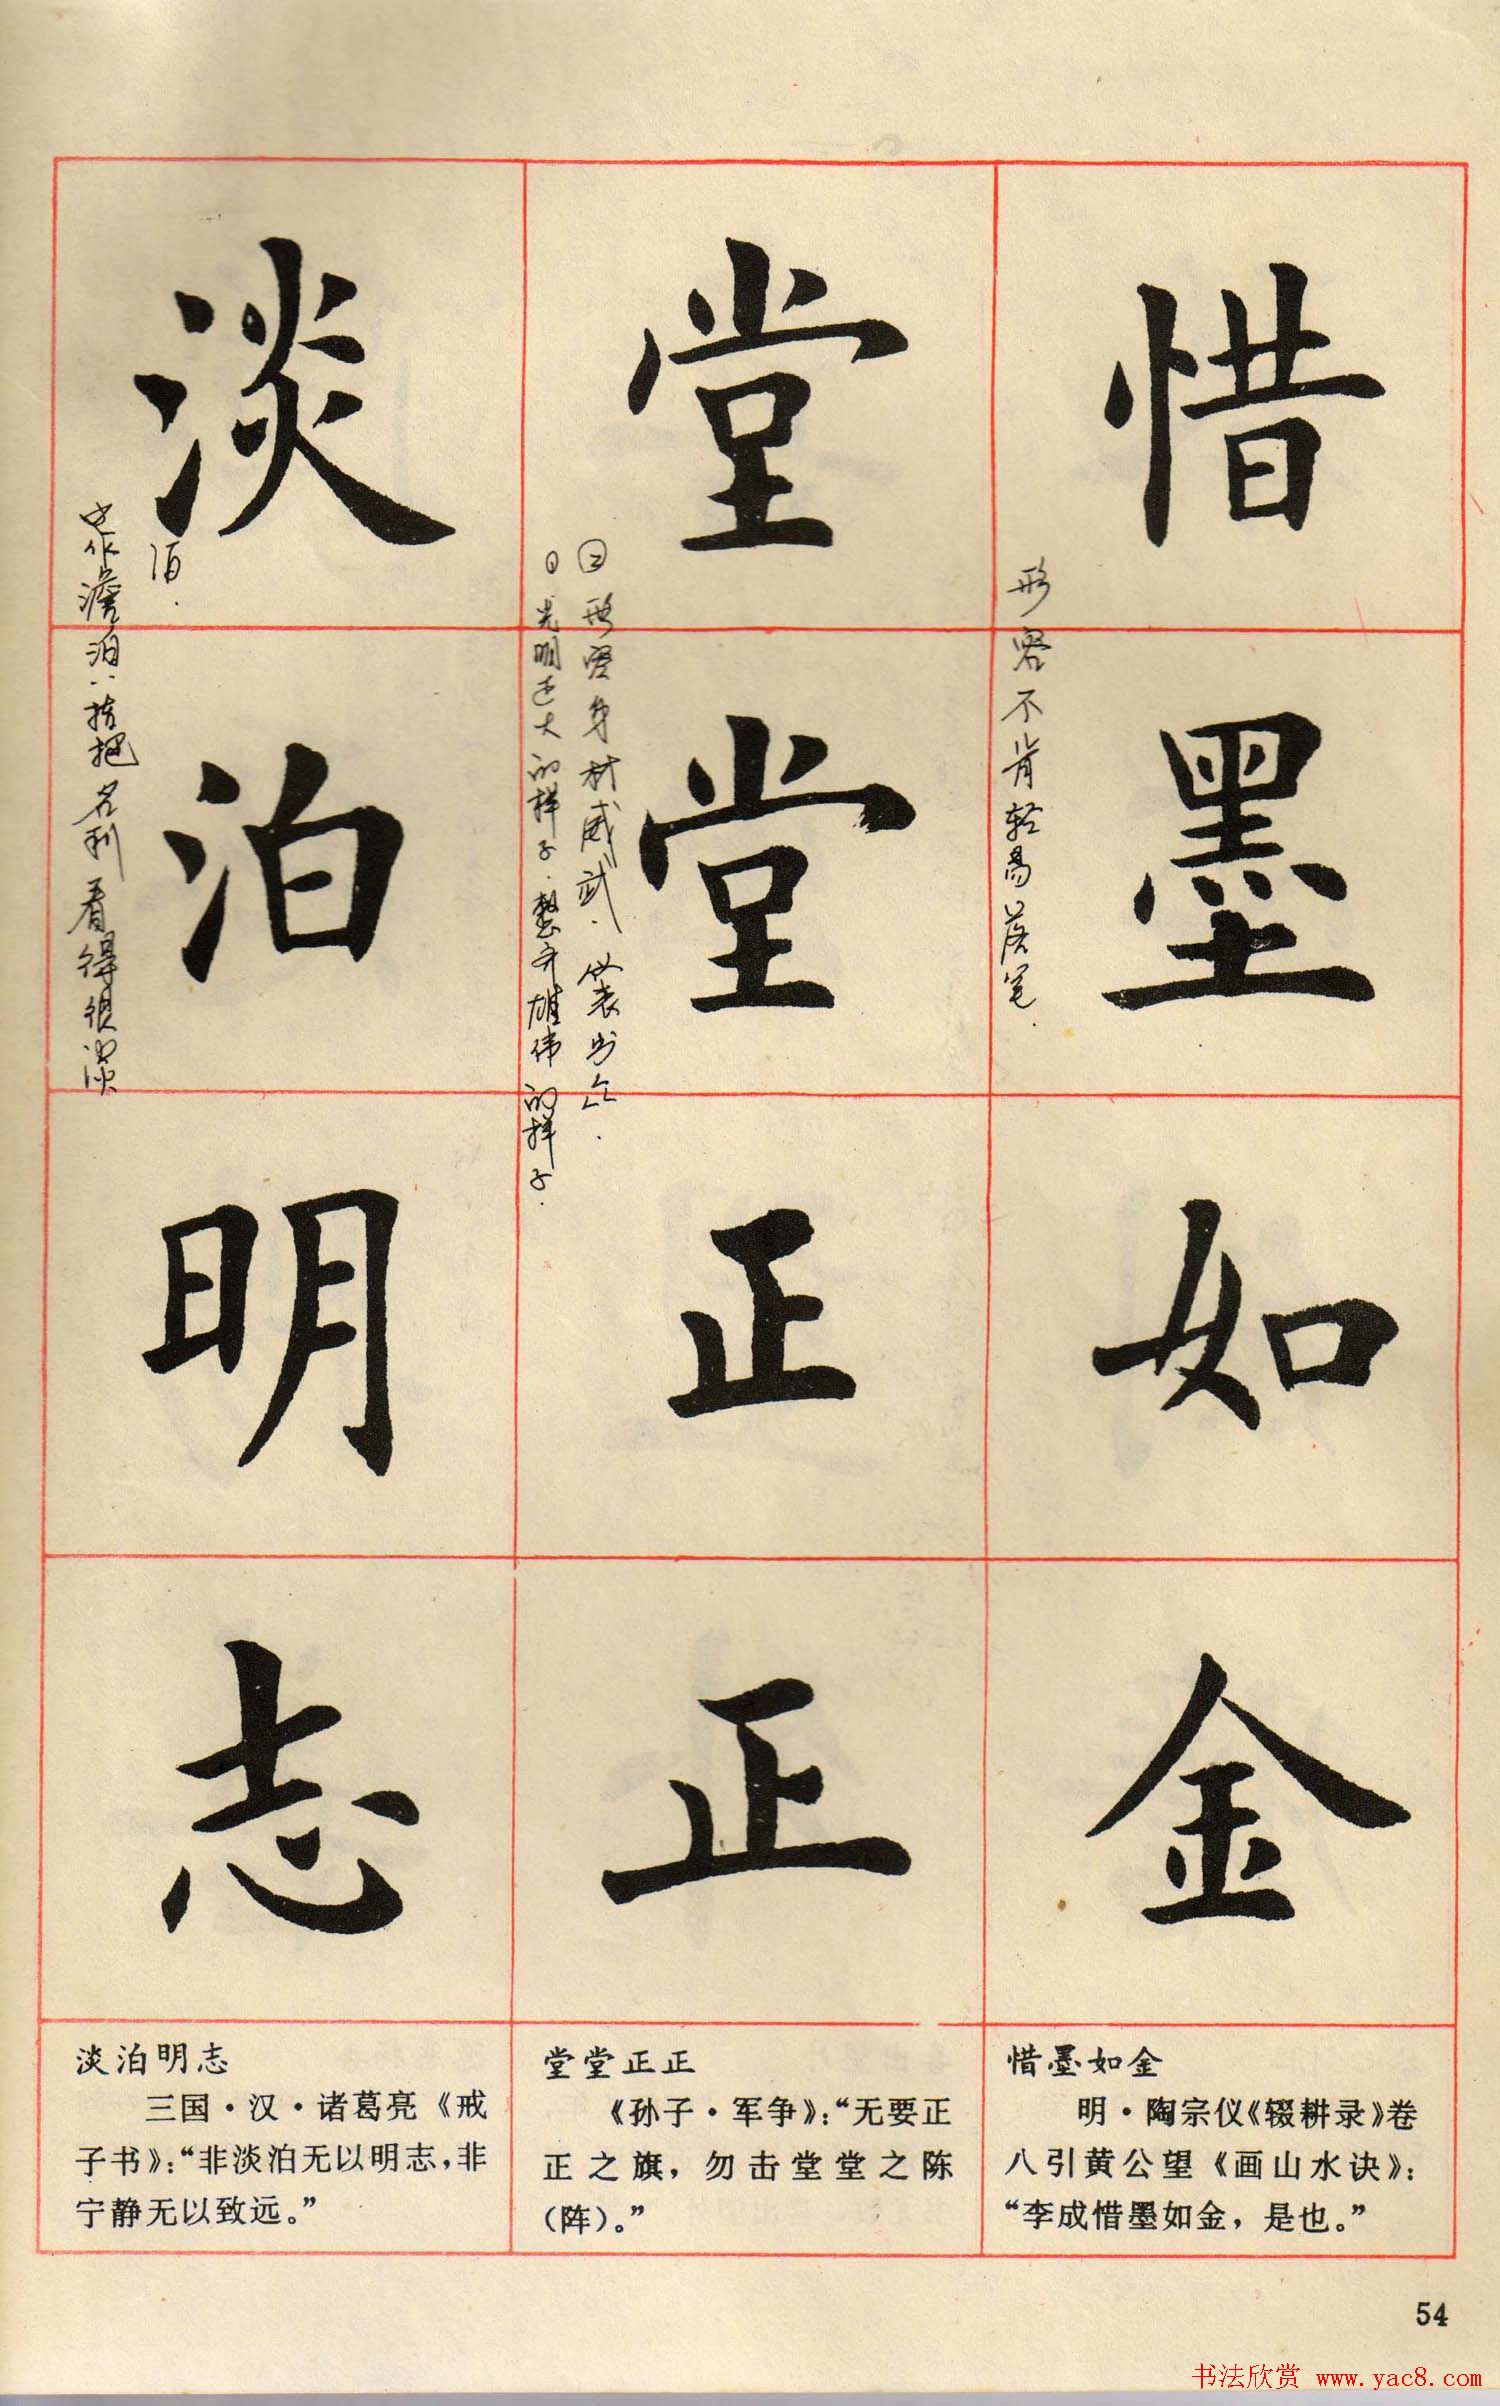 惜墨如金
形容不肯轻易落笔.
堂堂正正
㊀光明正大的样子.整齐雄伟的样子.
㊁形容身材威武.仪表出众.
淡泊明志
也作澹泊:指把名利看得很淡
惜墨如金
明·陶宗仪《辍耕录》卷
八引黄公望《画山水诀》:
“李成惜墨如金，是也。”
堂堂正正
《孙子·军争》:“无要正
正之旗，勿击堂堂之陈
(阵)。”
淡泊明志
三国·汉·诸葛亮《戒
子书》:“非淡泊无以明志，非
宁静无以致远。”
54
书法欣赏 www.yac8.com